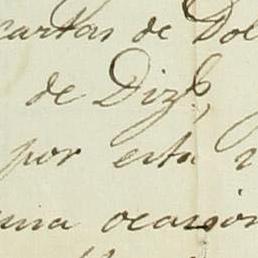 cartas de Dol
de Dizb,
por esta
una ocasion